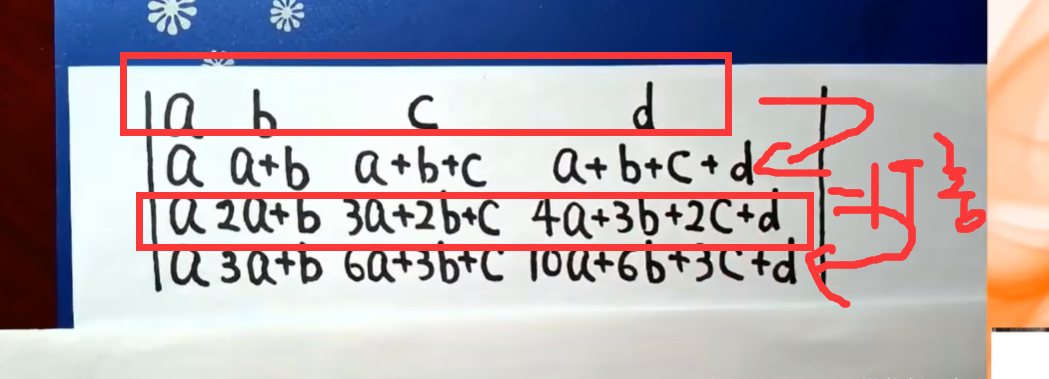 |a b c d|
|a a+b a+b+c a+b+c+d|
|a 2a+b 3a+2b+c 4a+3b+2c+d|
|a 3a+b 6a+3b+c 10a+6b+3c+d|